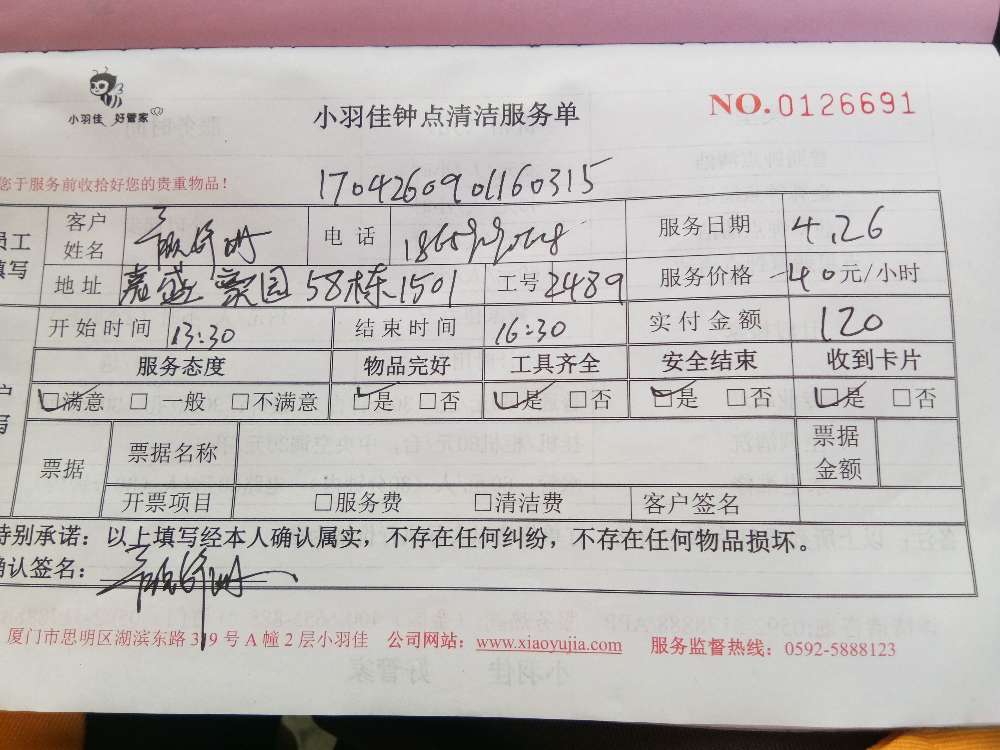 小羽佳 好管家
小羽佳钟点清洁服务单
NO.0126691
您于服务前收拾好您的贵重物品！
1704260901160315
员工填写 客户姓名 电话 服务日期 4.26
地址 嘉盛豪园58栋1501 工号 2489 服务价格 40元/小时
开始时间 13:30 结束时间 16:30 实付金额 120
服务态度 物品完好 工具齐全 安全结束 收到卡片
☑满意 □一般 □不满意 ☑是 □否 ☑是 □否 ☑是 □否 ☑是 □否
票据 票据名称 票据金额
开票项目 □服务费 □清洁费 客户签名
特别承诺：以上填写经本人确认属实，不存在任何纠纷，不存在任何物品损坏。
确认签名：
厦门市思明区湖滨东路319号A幢2层小羽佳 公司网站：www.xiaoyujia.com 服务监督热线：0592-5888123